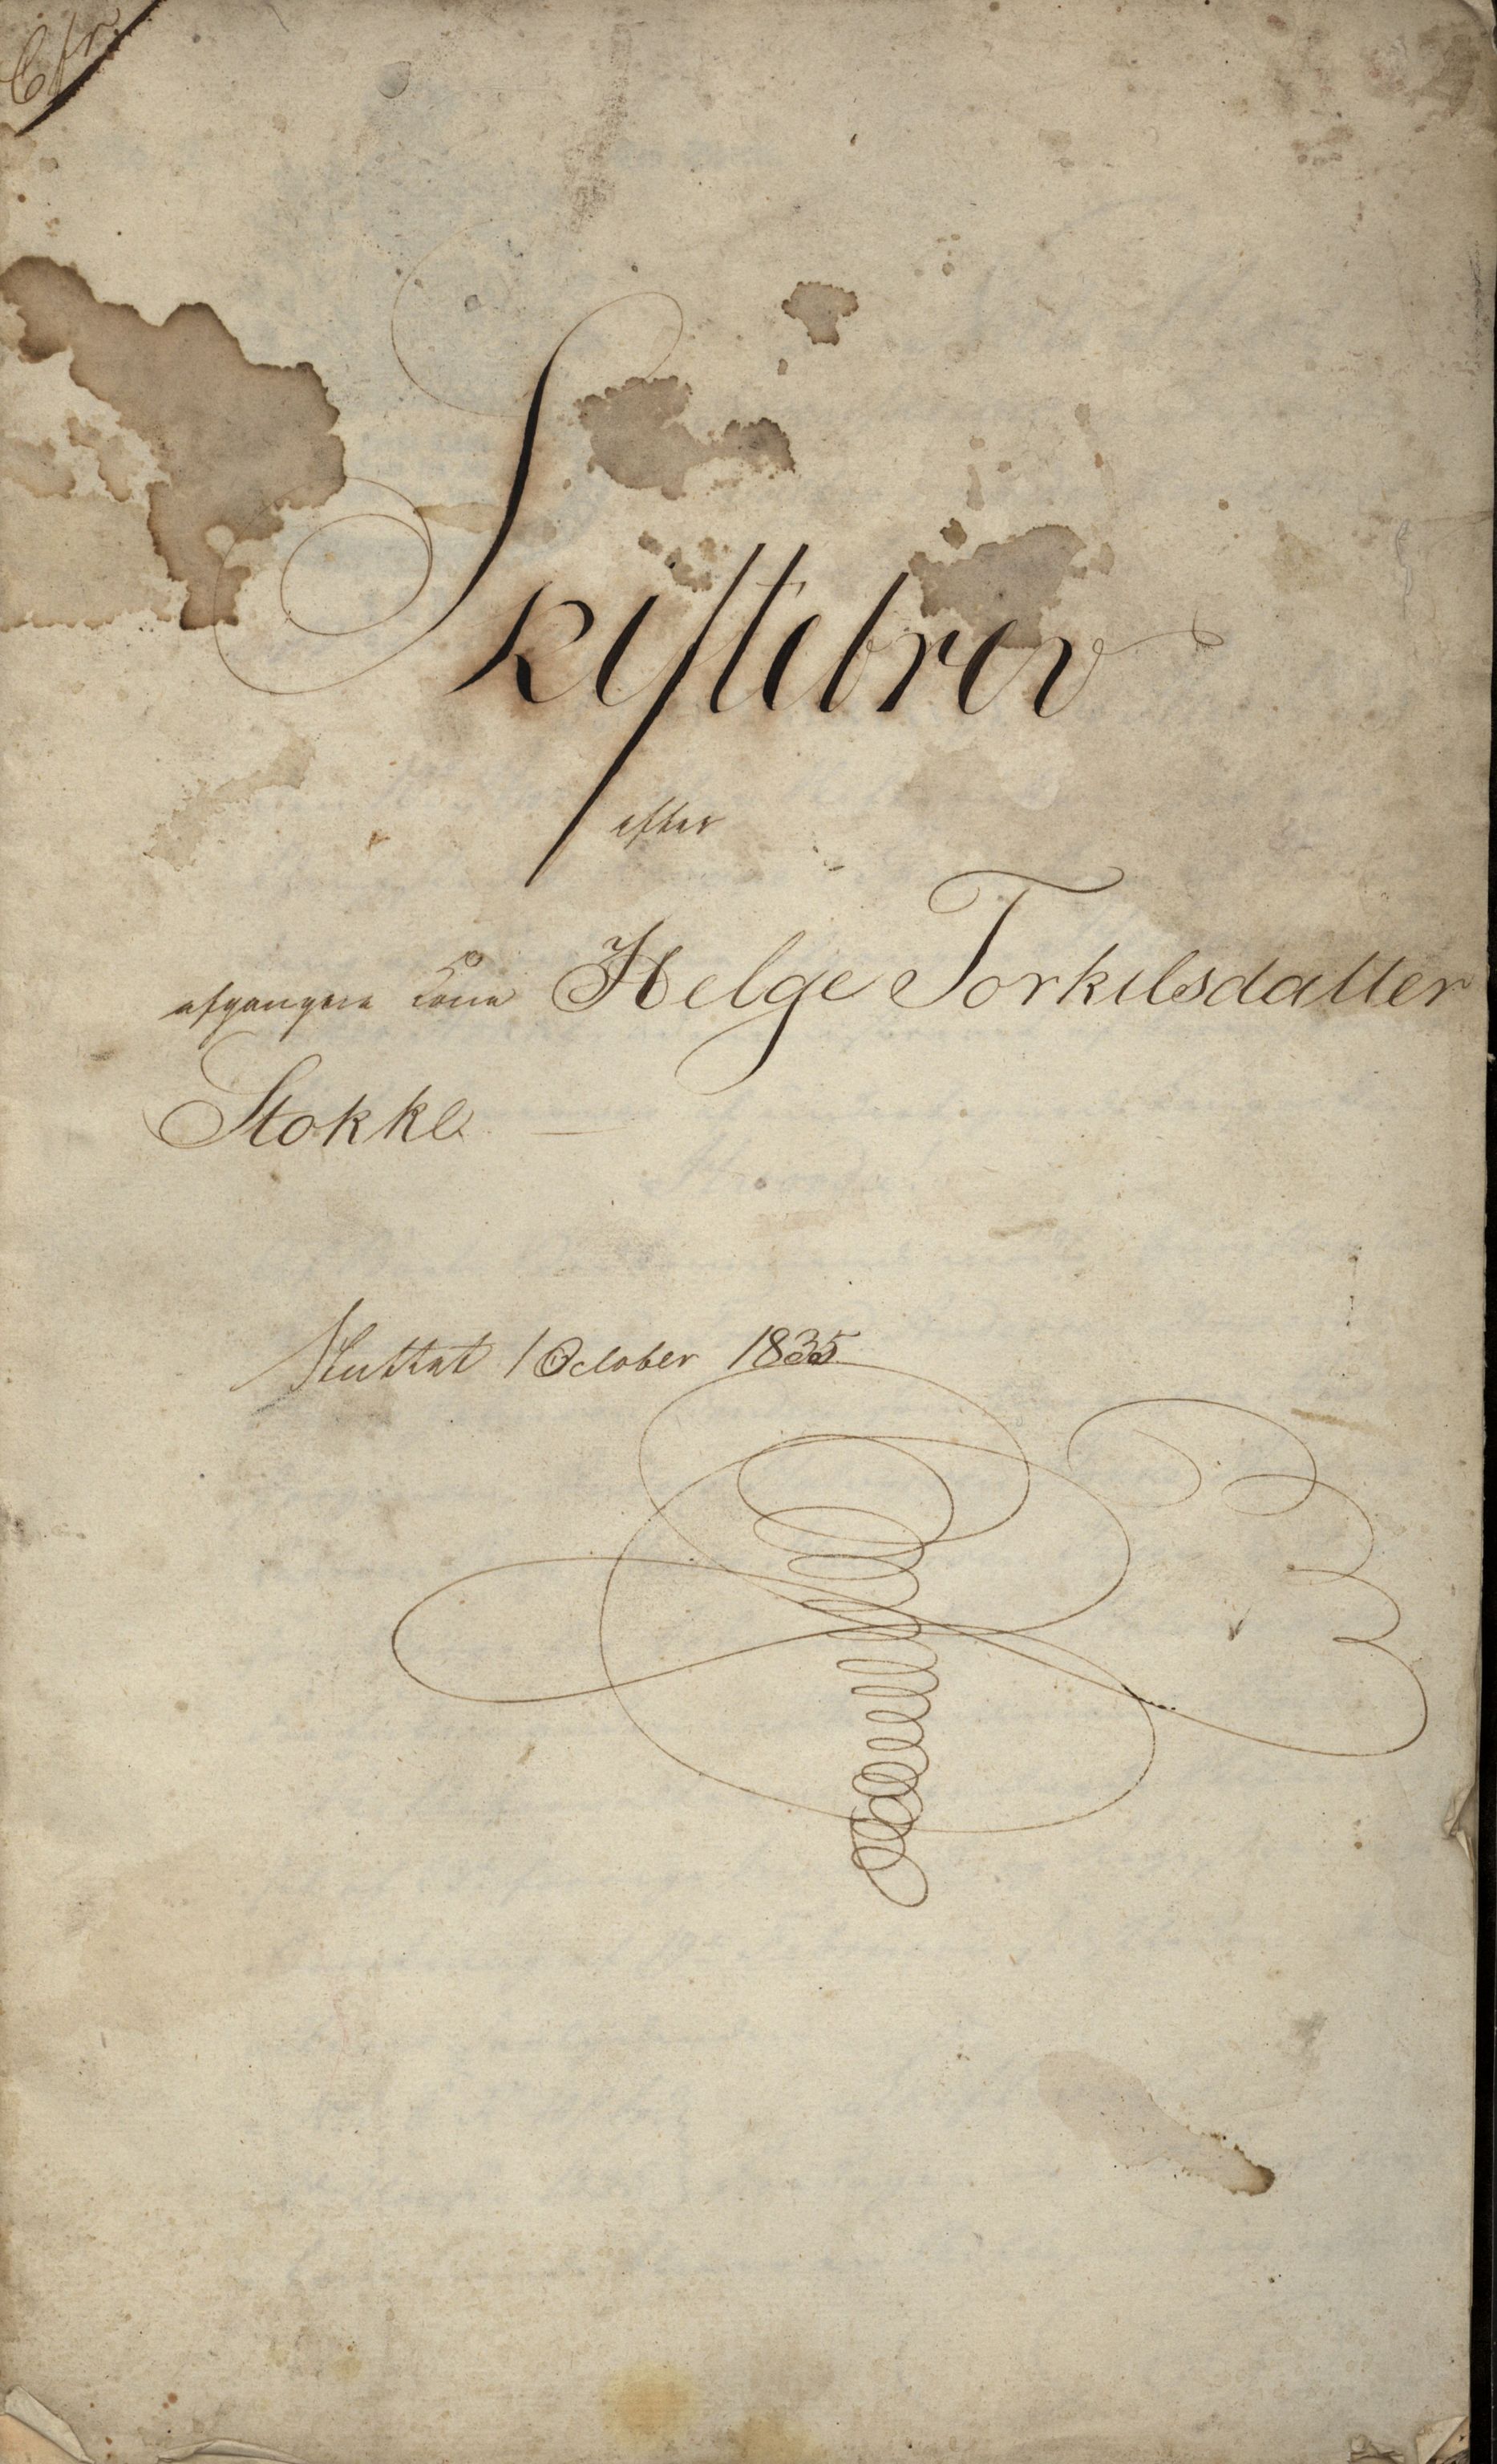 Skiftebrev
efter
afgangne Kone Helge Torkilsdatter
Stokke
Sluttet 1 October 1835